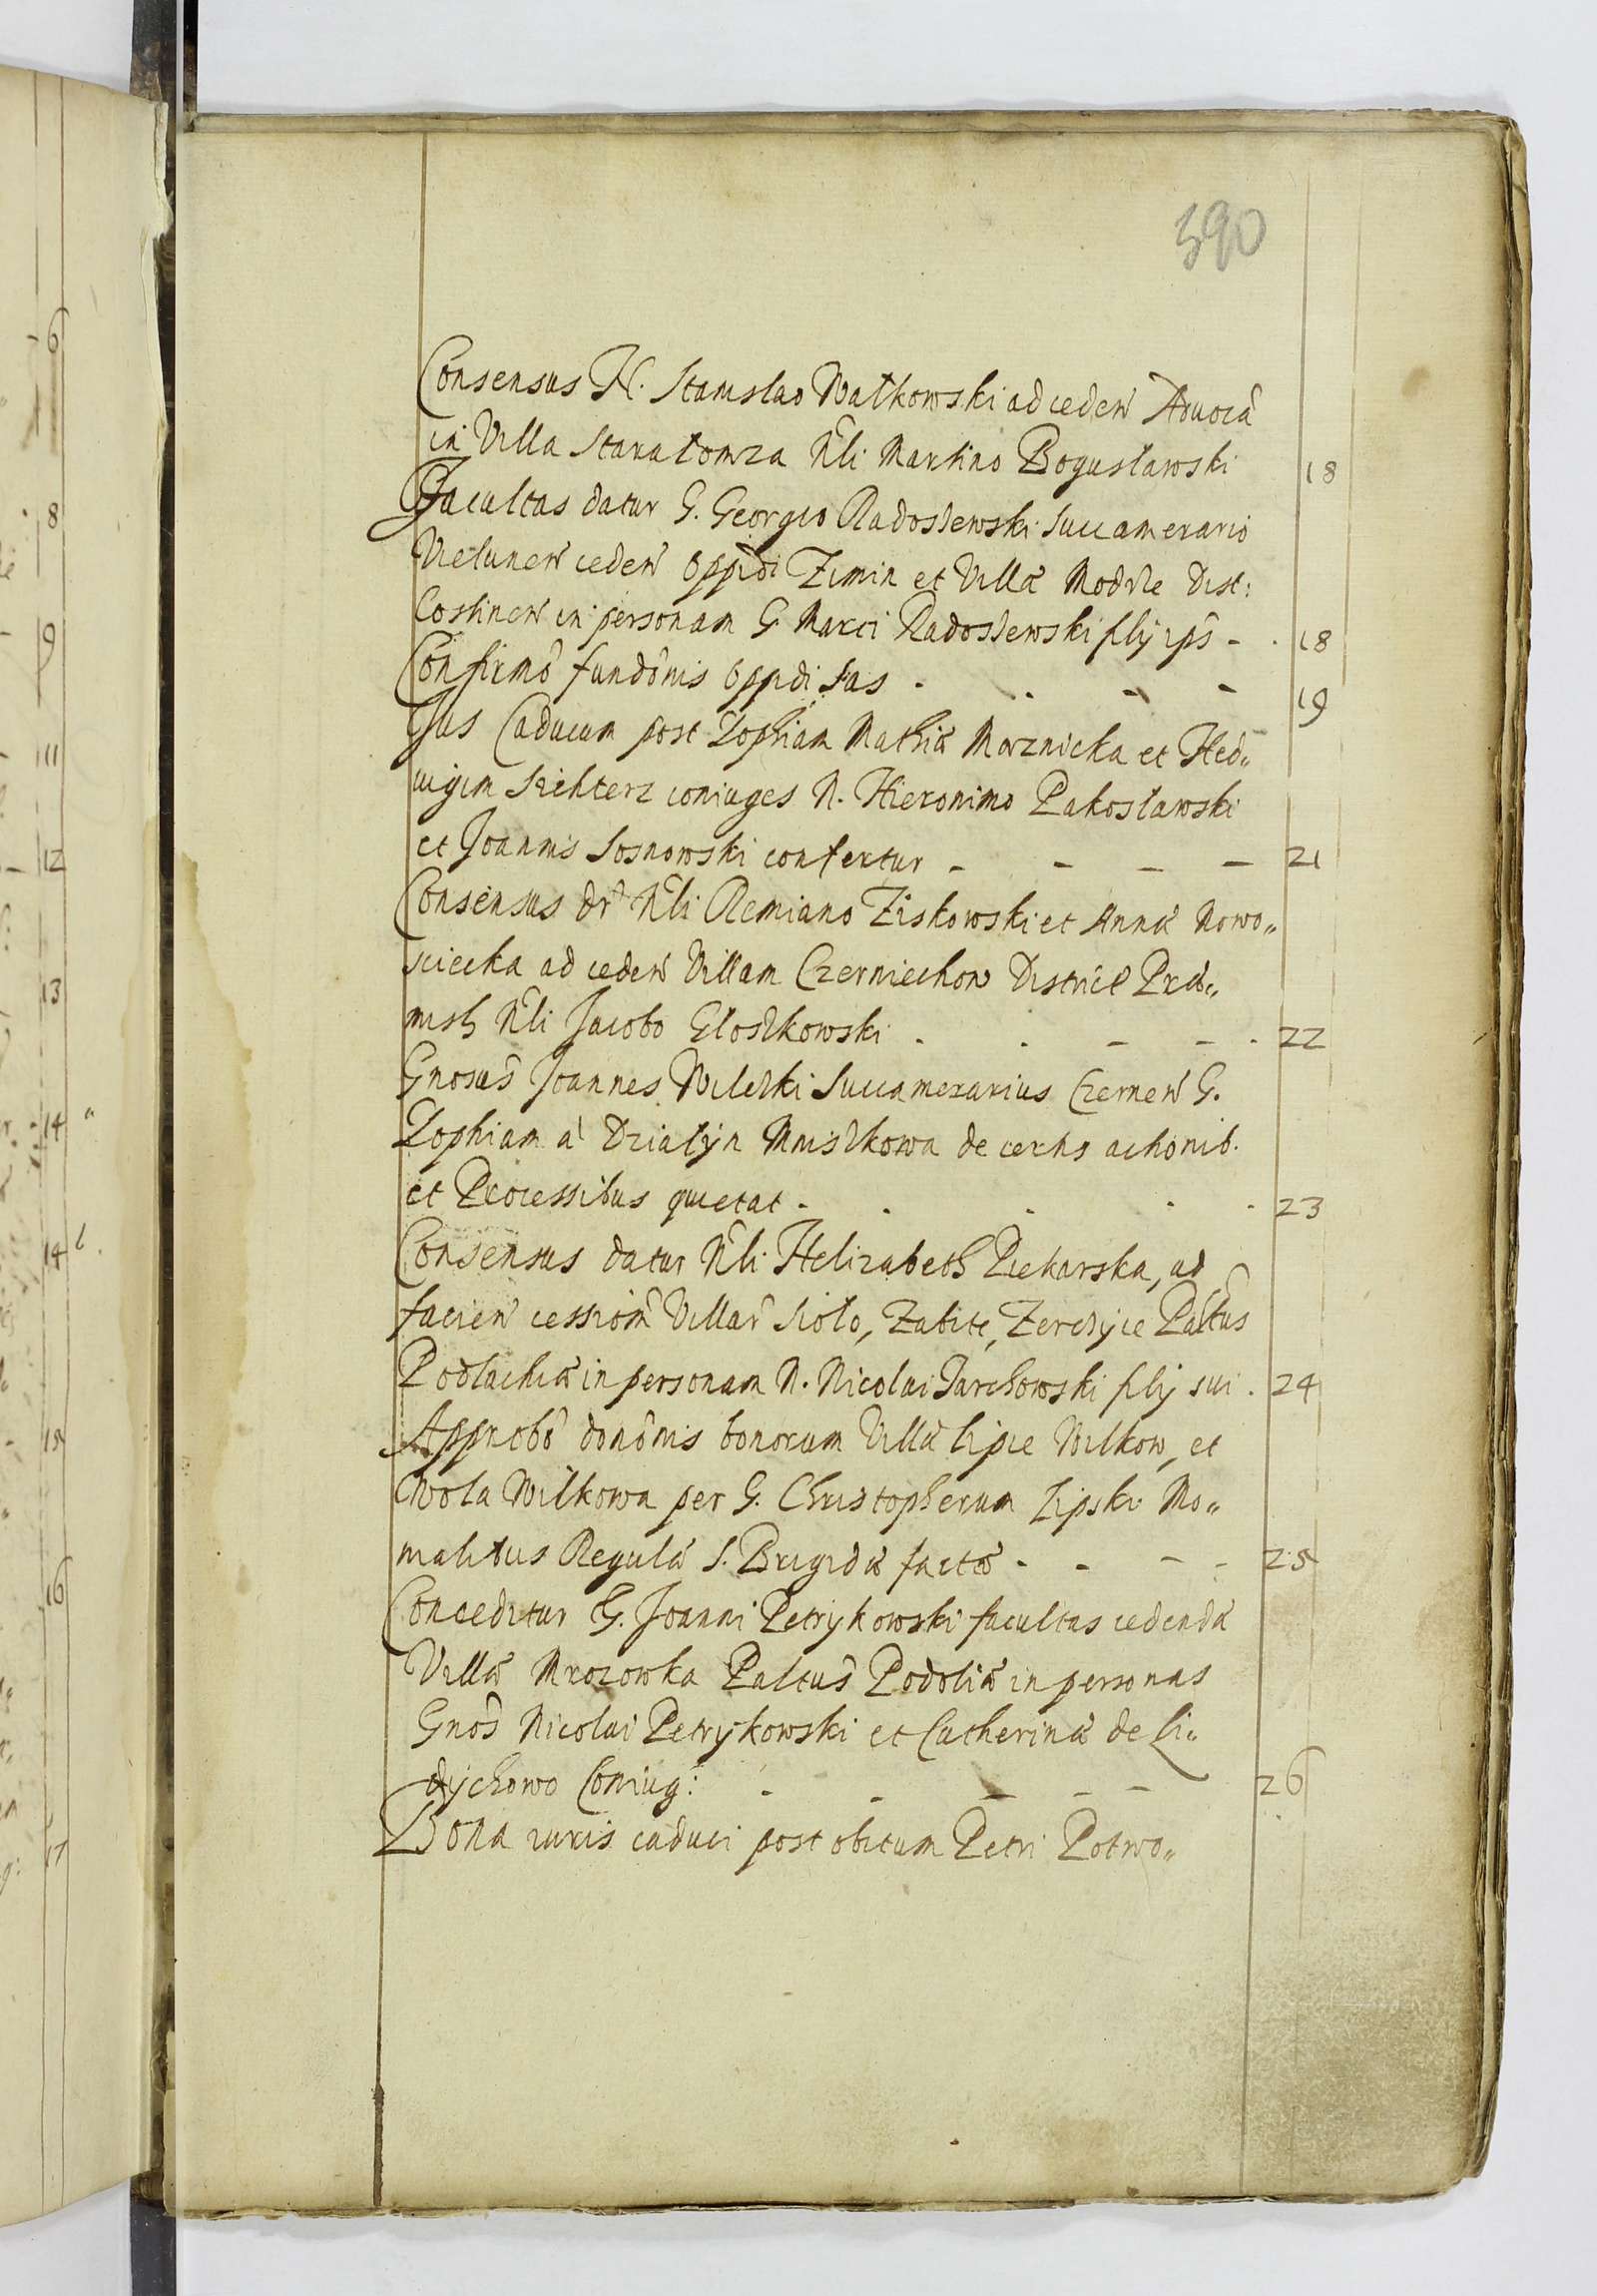 390
Consensus N. Stanislao Watkowski ad ceden̄ Aduocā
in Villa Stara Łomza Nl̄i Martino Bogusławski 18
Facultas datur G. Georgio Radoszewski Succamerario
Vielunen̄ ceden̄ Oppidi Zimin et Villæ Modrze Dist:
Costinen̄ in personam G. Marci Radoszewski filij ips̄ - . 18
Confirmō fundōnis Oppdi Sas . . - - 19
Jus Caducum post Zophiam Mathiæ Morznicka et Hed„
uigim Szichterz coniuges N. Hieronimo Pakosławski
et Joannis Sosnowski confertur - - - - 21
Consensus dr̄ Nl̄i Remiano Ziskowski et Annæ Nowo„
sciecka ad ceden̄ Villam Czerniechow District Præ„
misl̄ Nl̄i Jacobo Głoskowski . . - - . 22
Gnosus̄ Joannes Wilczki Succamerarius Czernen̄ G.
Zophiam a Dziatÿn Mniszkowa de certis actionib.
et Processibus quietat - . . . . 23
Consensus datur Nl̄i Helizabeth Piekarska, ad
facien̄ cessiōm Villar̄ Sioło, Zabite, Zerczÿce Pāltus
Podlachiæ in personam N. Nicolai Jarchowski filij sui . 24
Approbō donōnis bonorum Villæ Lipie Wilkow, et
Wola Wilkowa per G. Christopherum Lipski Mo„
nialibus Regulæ S. Brigidæ factæ - - - - 25
Conceditur G. Joanni Petrÿkowski facultas cedendæ
Villæ Mrozowka Paltus̄ Podoliæ in personas
Gnos̄ Nicolai Petrÿkowski et Catherinæ de Li„
dÿchowo Coniug: - - - - 26
Bona iuris caduci post obitum Petri Potwo„
6
8
9
11
12
13
14
14
15
16
17